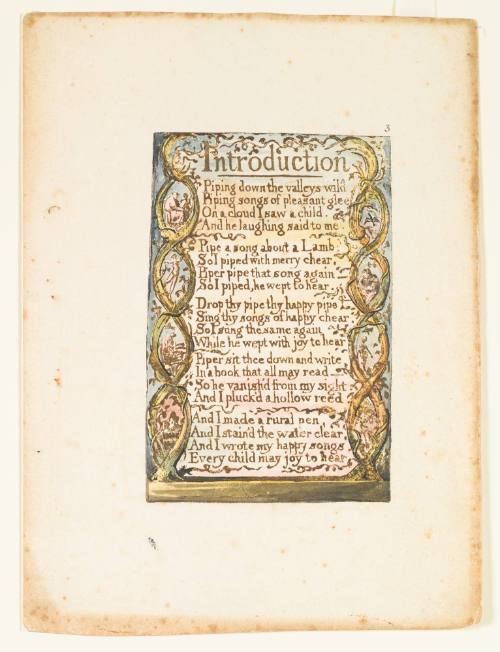 3
Introduction
Piping down the valleys wild
Piping songs of pleasant glee
On a cloud I saw a child.
And he laughing said to me.
Pipe a song about a Lamb;
So I piped with merry chear,
Piper pipe that song again—
So I piped, he wept to hear.
Drop thy pipe thy happy pipe
Sing thy songs of happy chear
So I sung the same again
While he wept with joy to hear
Piper sit thee down and write
In a book that all may read—
So he vanish'd from my sight
And I pluck'd a hollow reed
And I made a rural pen,
And I stain'd the water clear,
And I wrote my happy songs
Every child may joy to hear